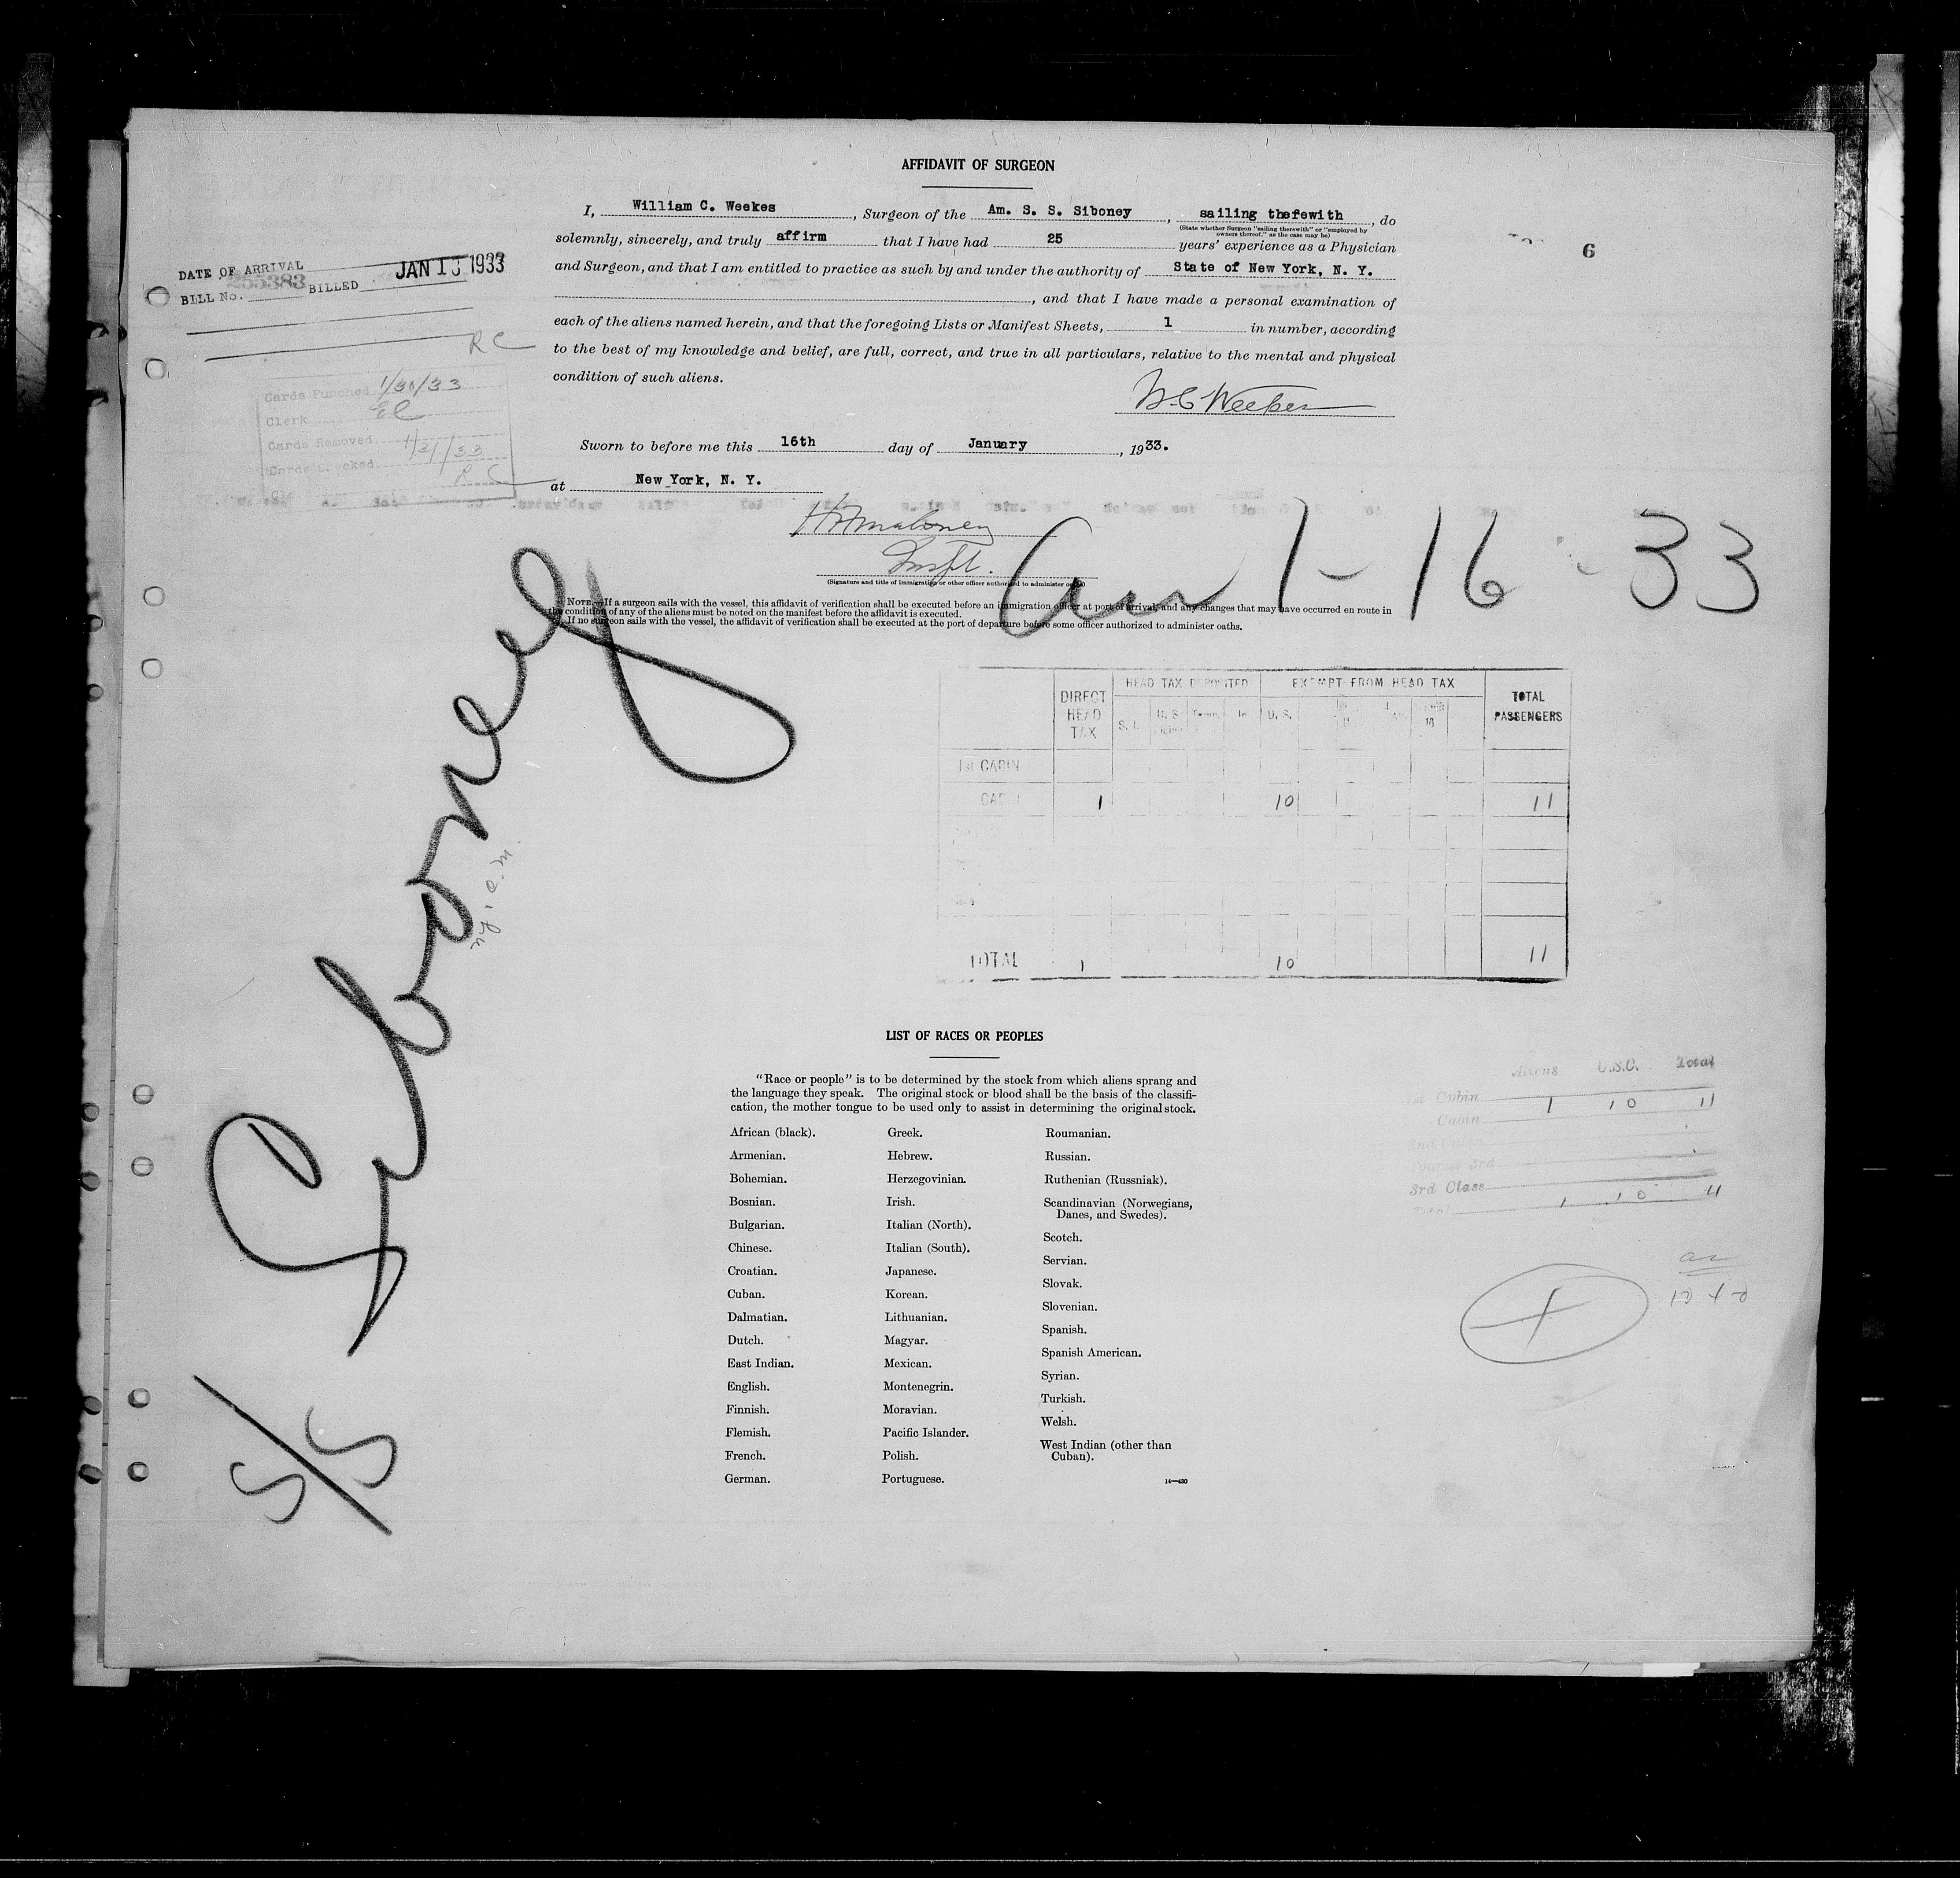 AFFIDAVIT OF SURGEON
I, William C. Weekes, Surgeon of the Am. S. S. Siboney, sailing thefewith, do
(State whether Surgeon "sailing therewith" or "employed by
owners thereof," as the case may be)
solemnly, sincerely, and truly affirm that I have had 25 years' experience as a Physician
and Surgeon, and that I am entitled to practice as such by and under the authority of State of New York, N. Y.
, and that I have made a personal examination of
each of the aliens named herein, and that the foregoing Lists or Manifest Sheets, 1 in number, according
to the best of my knowledge and belief, are full, correct, and true in all particulars, relative to the mental and physical
condition of such aliens.
W. C. Weekes
Sworn to before me this 16th day of January, 1933.
at New York, N. Y.
Maloney
Inspt.
(Signature and title of immigration or other officer authorized to administer oaths)
NOTE.—If a surgeon sails with the vessel, this affidavit of verification shall be executed before an immigration officer at port of arrival, and any changes that may have occurred en route in
the condition of any of the aliens must be noted on the manifest before the affidavit is executed.
If no surgeon sails with the vessel, the affidavit of verification shall be executed at the port of departure before some officer authorized to administer oaths.
6
DATE OF ARRIVAL JAN 13 1933
BILL No. 255383 BILLED
R C
Cards Punched 1/30/33
Clerk
Cards Removed 1/31/33
Cards Checked R C
Arr 1-16-33
S/S Siboney
DIRECT HEAD TAX
HEAD TAX DEPOSITED
EXEMPT FROM HEAD TAX
TOTAL PASSENGERS
S. I. U. S. U. S. 
1st CABIN
CABIN 1 10 11
TOTAL 1 10 11
LIST OF RACES OR PEOPLES
"Race or people" is to be determined by the stock from which aliens sprang and
the language they speak. The original stock or blood shall be the basis of the classifi-
cation, the mother tongue to be used only to assist in determining the original stock.
African (black).
Armenian.
Bohemian.
Bosnian.
Bulgarian.
Chinese.
Croatian.
Cuban.
Dalmatian.
Dutch.
East Indian.
English.
Finnish.
Flemish.
French.
German.
Greek.
Hebrew.
Herzegovinian.
Irish.
Italian (North).
Italian (South).
Japanese.
Korean.
Lithuanian.
Magyar.
Mexican.
Montenegrin.
Moravian.
Pacific Islander.
Polish.
Portuguese.
Roumanian.
Russian.
Ruthenian (Russniak).
Scandinavian (Norwegians,
Danes, and Swedes).
Scotch.
Servian.
Slovak.
Slovenian.
Spanish.
Spanish American.
Syrian.
Turkish.
Welsh.
West Indian (other than
Cuban).
14—430
Aliens U.S.C. Total
1st Cabin
Cabin 1 10 11
Tourist 3rd
3rd Class
Total 1 10 11